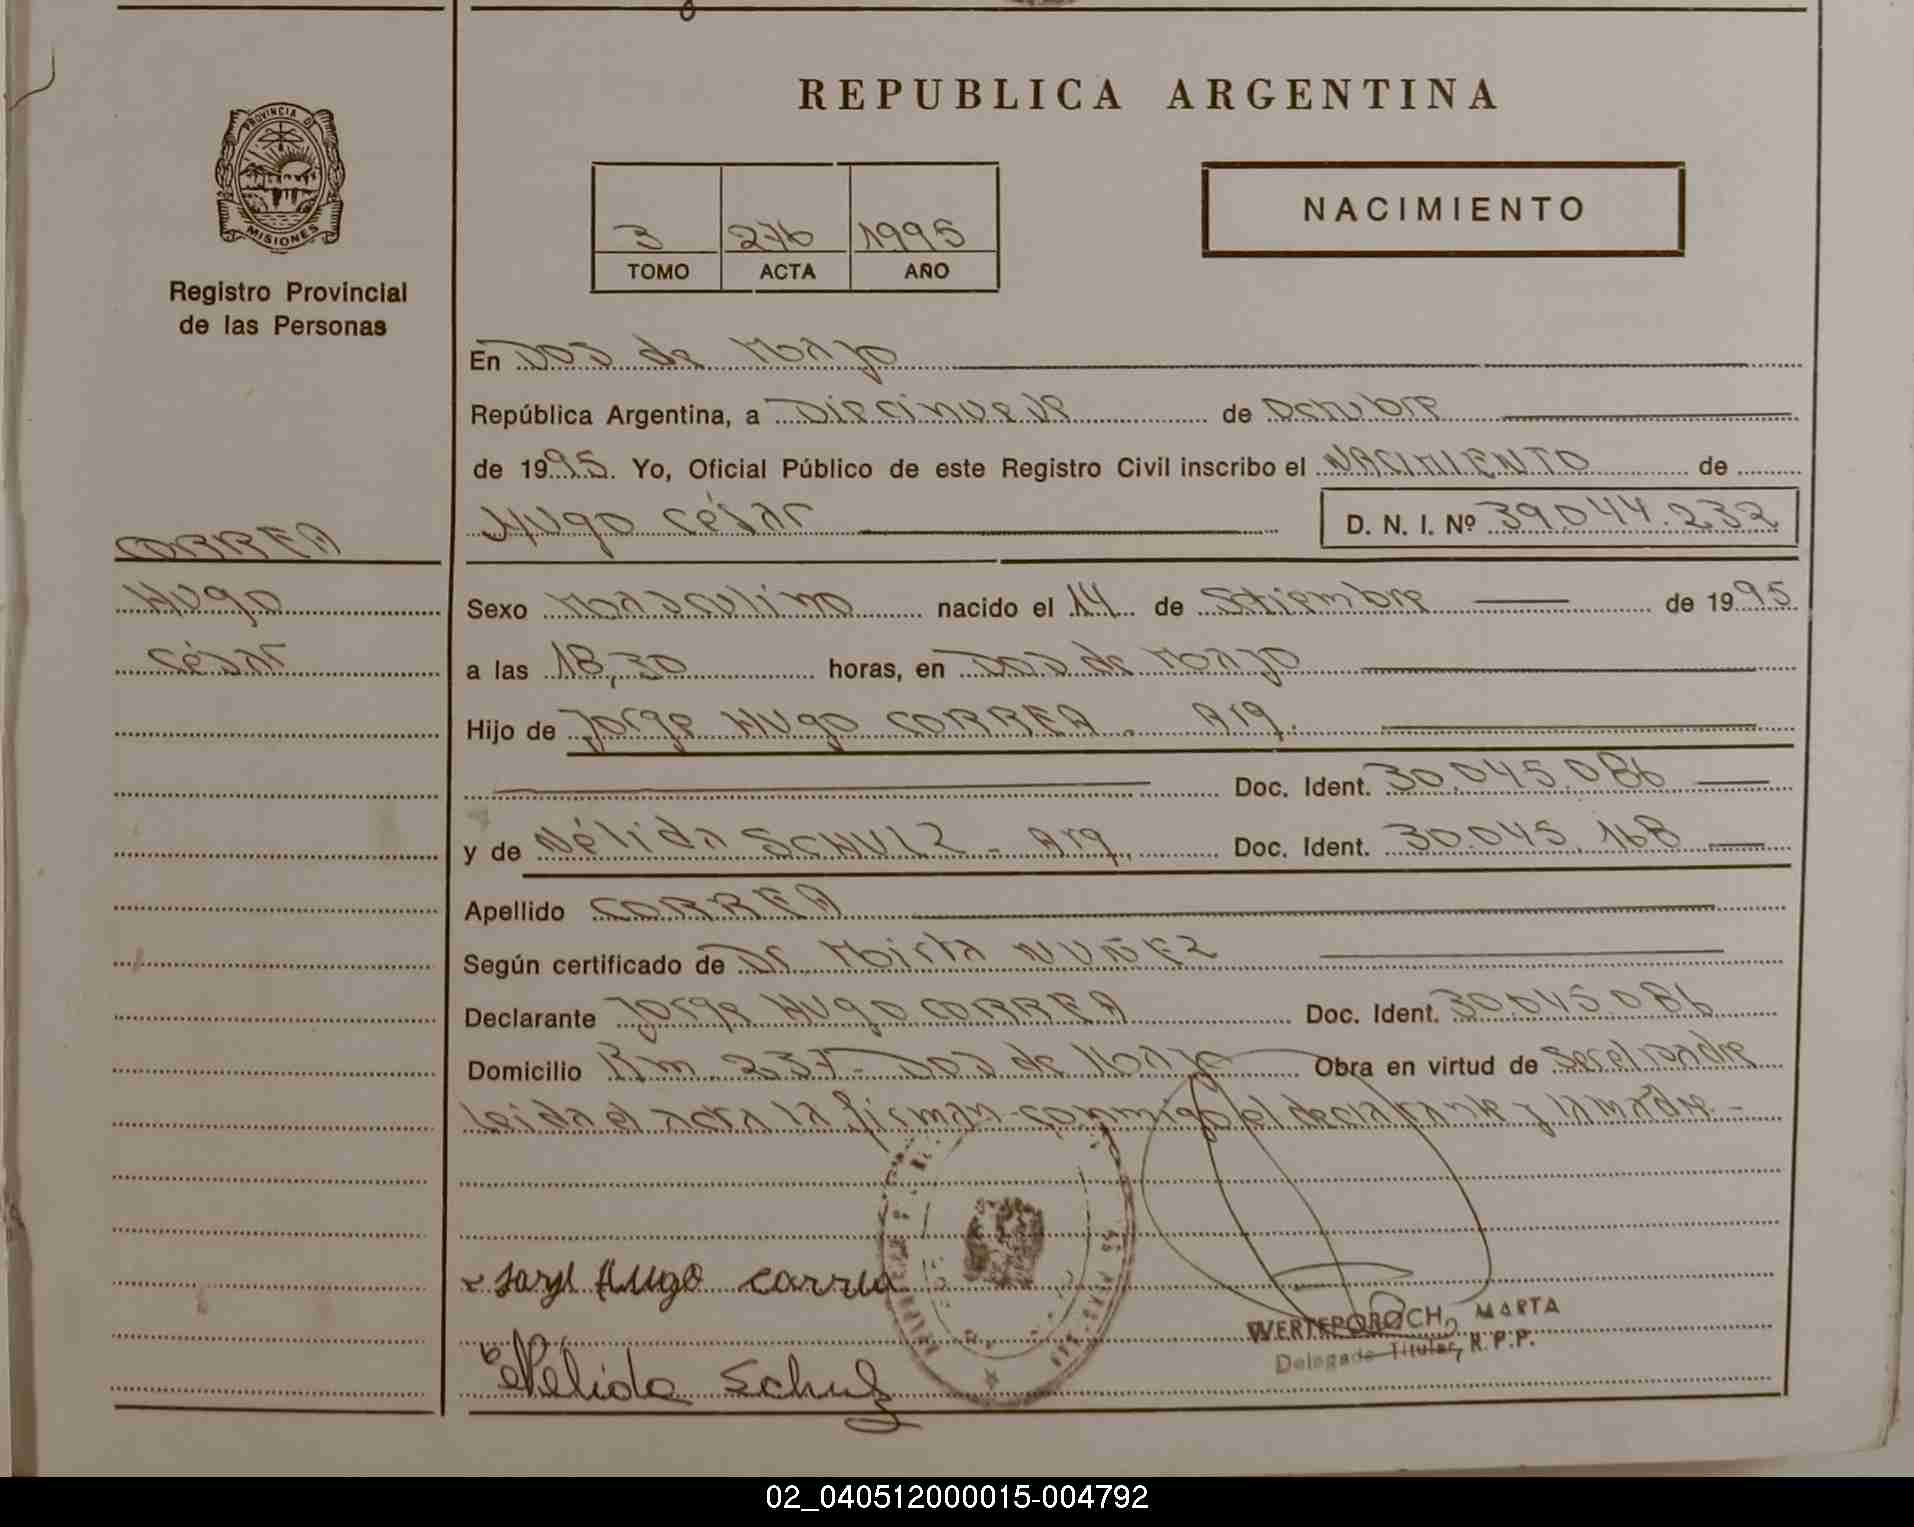 PROVINCIA DE
MISIONES
Registro Provincial
de las Personas
CORREA
Hugo
César
REPUBLICA ARGENTINA
3 276 1995
TOMO ACTA AÑO
NACIMIENTO
En Dos de Mayo
República Argentina, a Diecinueve de Octubre
de 1995. Yo, Oficial Público de este Registro Civil inscribo el NACIMIENTO de
Hugo César D. N. I. Nº 39.044.232
Sexo Masculino nacido el 14 de Setiembre de 1995
a las 18,30 horas, en Dos de Mayo
Hijo de Jorge Hugo CORREA. Arg.
Doc. Ident. 30.045.086
y de Nélida SCHULZ - Arg. Doc. Ident. 30.045.168
Apellido CORREA
Según certificado de Dr. Mirta NUÑEZ
Declarante Jorge Hugo CORREA Doc. Ident. 30.045.086
Domicilio Km. 237 - Dos de Mayo Obra en virtud de ser el padre
Leida el acta la firman conmigo el declarante y la madre.-
Hugo Correa
Nélida Schulz
WERTEPOROCH, MARTA
Delegada Titular, R.P.P.
02_040512000015-004792